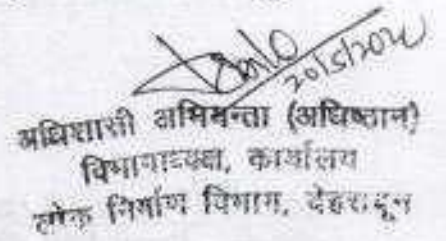 20/5/2024
अधिशासी अभियन्ता (अधिष्ठान)
विभागाध्यक्ष, कार्यालय
लोक निर्माण विभाग, देहरादून